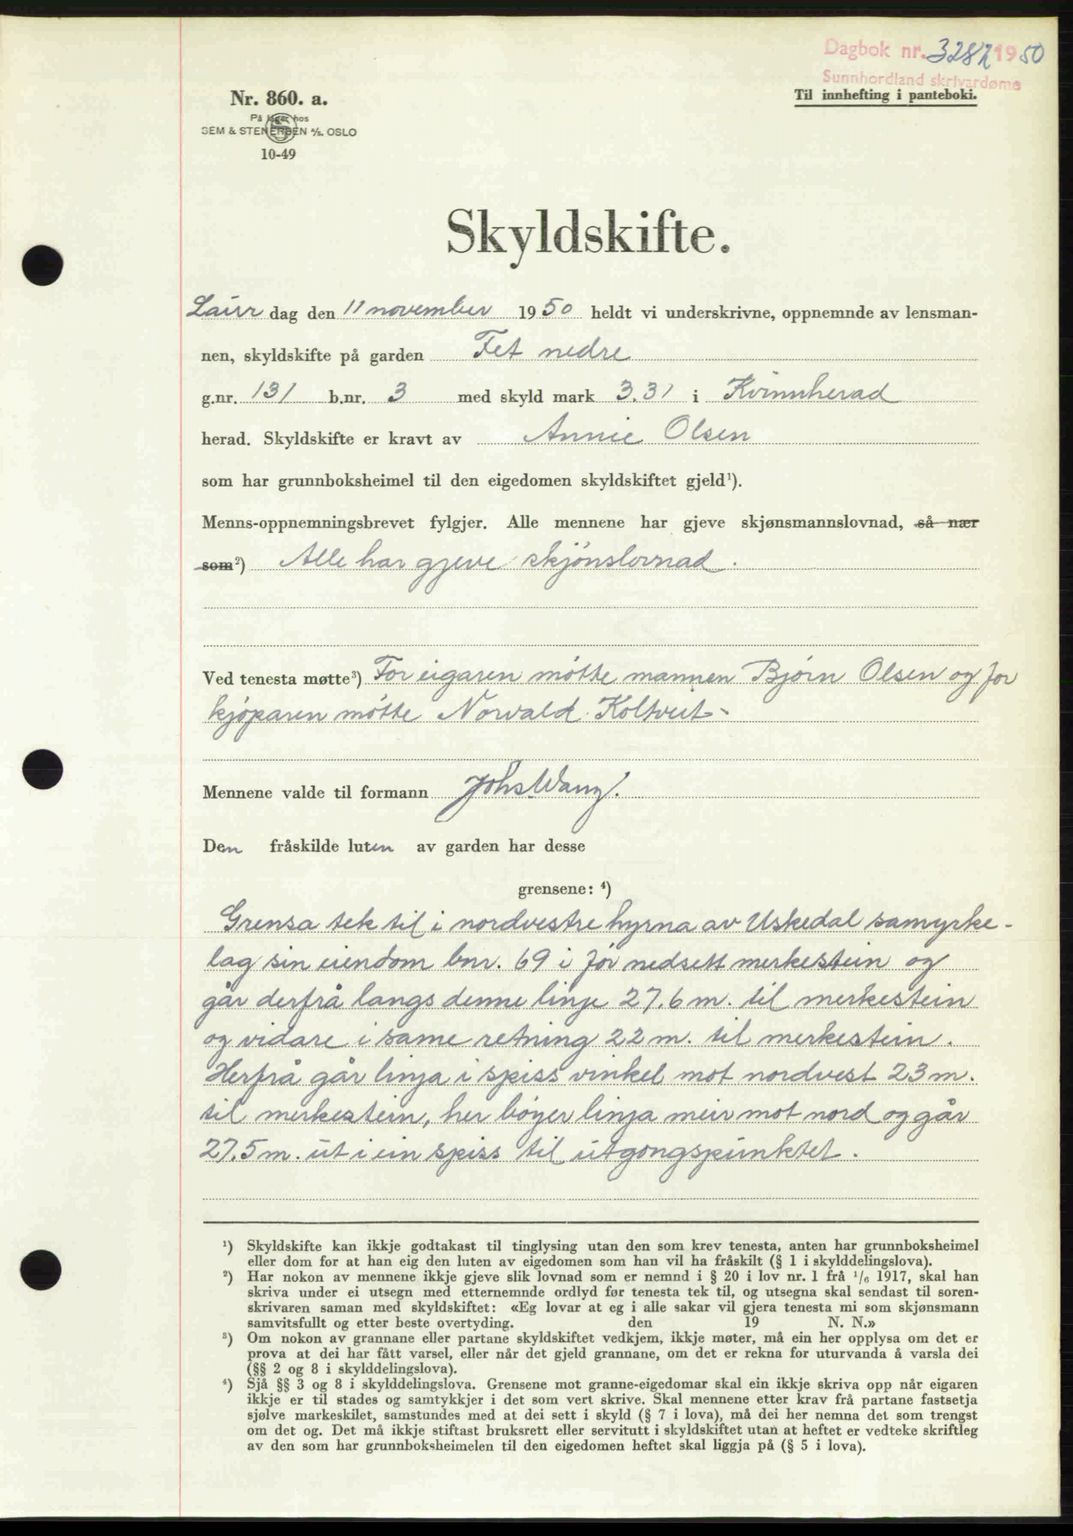 Dagbok nr. 3282 1950
Sunnhordland skrivardøme
Til innhefting i panteboki.
Nr. 860. a.
På lager hos
SEM & STENERSEN A/S. OSLO
10-49
Skyldskifte.
Laur dag den 11 november 1950 heldt vi underskrivne, oppnemnde av lensman-
nen, skyldskifte på garden Fet nedre
g.nr. 131 b.nr. 3 med skyld mark 3.31 i Kvinnherad
herad. Skyldskifte er kravt av Annie Olsen
som har grunnboksheimel til den eigedomen skyldskiftet gjeld¹).
Menns-oppnemningsbrevet fylgjer. Alle mennene har gjeve skjønsmannslovnad, så nær
som²) Alle har gjeve skjönslovnad.
Ved tenesta møtte³) For eigaren mötte mannen Bjørn Olsen og for
kjöparen mötte Norvald Koltveit-
Mennene valde til formann Johs. Wang.
Den fråskilde luten av garden har desse
grensene: ⁴)
Grensa tek til i nordvestre hyrna av Uskedal samyrke-
lag sin eiendom bnr. 69 i før nedsett merkestein og
går derfrå langs denne linje 27.6 m. til merkestein
og vidare i same retning 22 m. til merkestein.
Herfrå går linja i spiss vinkel mot nordvest 23 m.
til merkestein, her böyer linja meir mot nord og går
27.5 m. ut i ein spiss til utgongspunktet.
¹) Skyldskifte kan ikkje godtakast til tinglysing utan den som krev tenesta, anten har grunnboksheimel
eller dom for at han eig den luten av eigedomen som han vil ha fråskilt (§ 1 i skylddelingslova).
²) Har nokon av mennene ikkje gjeve slik lovnad som er nemnd i § 20 i lov nr. 1 frå ¹/₆ 1917, skal han
skriva under ei utsegn med etternemnde ordlyd før tenesta tek til, og utsegna skal sendast til soren-
skrivaren saman med skyldskiftet: «Eg lovar at eg i alle sakar vil gjera tenesta mi som skjønsmann
samvitsfullt og etter beste overtyding. den 19 N. N.»
³) Om nokon av grannane eller partane skyldskiftet vedkjem, ikkje møter, må ein her opplysa om det er
prova at dei har fått varsel, eller når det gjeld grannane, om det er rekna for uturvanda å varsla dei
(§§ 2 og 8 i skylddelingslova).
⁴) Sjå §§ 3 og 8 i skylddelingslova. Grensene mot granne-eigedomar skal ein ikkje skriva opp når eigaren
ikkje er til stades og samtykkjer i det som vert skrive. Skal mennene etter krav frå partane fastsetja
sjølve markeskilet, samstundes med at dei sett i skyld (§ 7 i lova), må dei her nemna det som trengst
om det og. Det må ikkje stiftast bruksrett eller servitutt i skyldskiftet utan at heftet er vedteke skriftleg
av den som har grunnboksheimelen til den eigedomen heftet skal liggja på (§ 5 i lova).